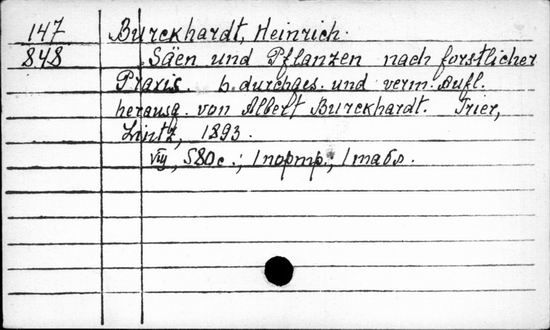 147 Burckhardt, Heinrich.
848 Säen und Pflanzen nach forstlicher
Praxis. 6. durchges. und verm. Aufl.
herausg. von Albert Burckhardt. Trier,
Lintz, 1893.
VIII, 580 с.; 1 портр.; 1 табл.